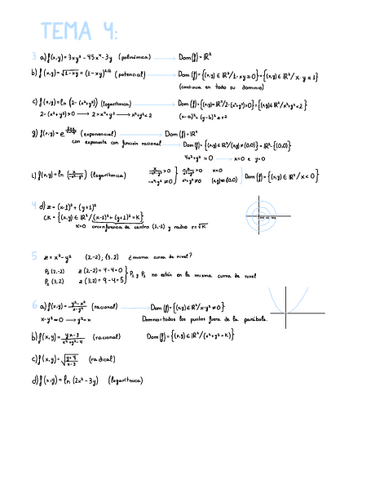 TEMA 4:
3 a) f(x,y) = 3xy² - 45x⁴ - 3y (polinómica) → Dom(f) = ℝ²
b) f(x,y) = √(1-xy) = (1-xy)^(1/2) (potencial) → Dom(f) = {(x,y) ∈ ℝ² / 1-xy ≥ 0} = {(x,y) ∈ ℝ² / x·y ≤ 1}
(continua en todo su dominio)
c) f(x,y) = ln (2-(x²+y²)) (logarítmica) → Dom(f) = {(x,y) ∈ ℝ² / 2-(x²+y²) > 0} = {(x,y) ∈ ℝ² / x²+y² < 2}
2-(x²+y²) > 0 → 2 > x²+y² → x²+y² < 2
g) f(x,y) = e (exponencial) Dom(f) = ℝ²
con exponente con función racional → Dom(f) = {(x,y) ∈ ℝ² / (x,y) ≠ (0,0)} = ℝ² - {(0,0)}
4x²+y² = 0 → x=0 e y=0
f(x,y) = ln (logarítmica) Dom(f) = {(x,y) ∈ ℝ² / x < 0}
4 d) z = (x-1)² + (y+1)²
CK = {(x,y) ∈ ℝ² / (x-1)² + (y+1)² = K}
K>0 circunferencia de centro (1,-1) y radio r=√K
5 z = x² - y² (2,-2), (3,2) ¿misma curva de nivel?
P₁ (2,-2) z (2,-2) = 4-4 = 0
P₂ (3,2) z (3,2) = 9-4 = 5
P₁ y P₂ no están en la misma curva de nivel
6 a) f(x,y) = (racional) → Dom(f) = {(x,y) ∈ ℝ² / x-y² ≠ 0}
x-y² = 0 → y² = x Domino = todos los puntos fuera de la parábola
b) f(x,y) = (racional) Dom(f) = {(x,y) ∈ ℝ² /
c) f(x,y) = (radical)
d) f(x,y) = ln (2x² - 3y) (logarítmica)